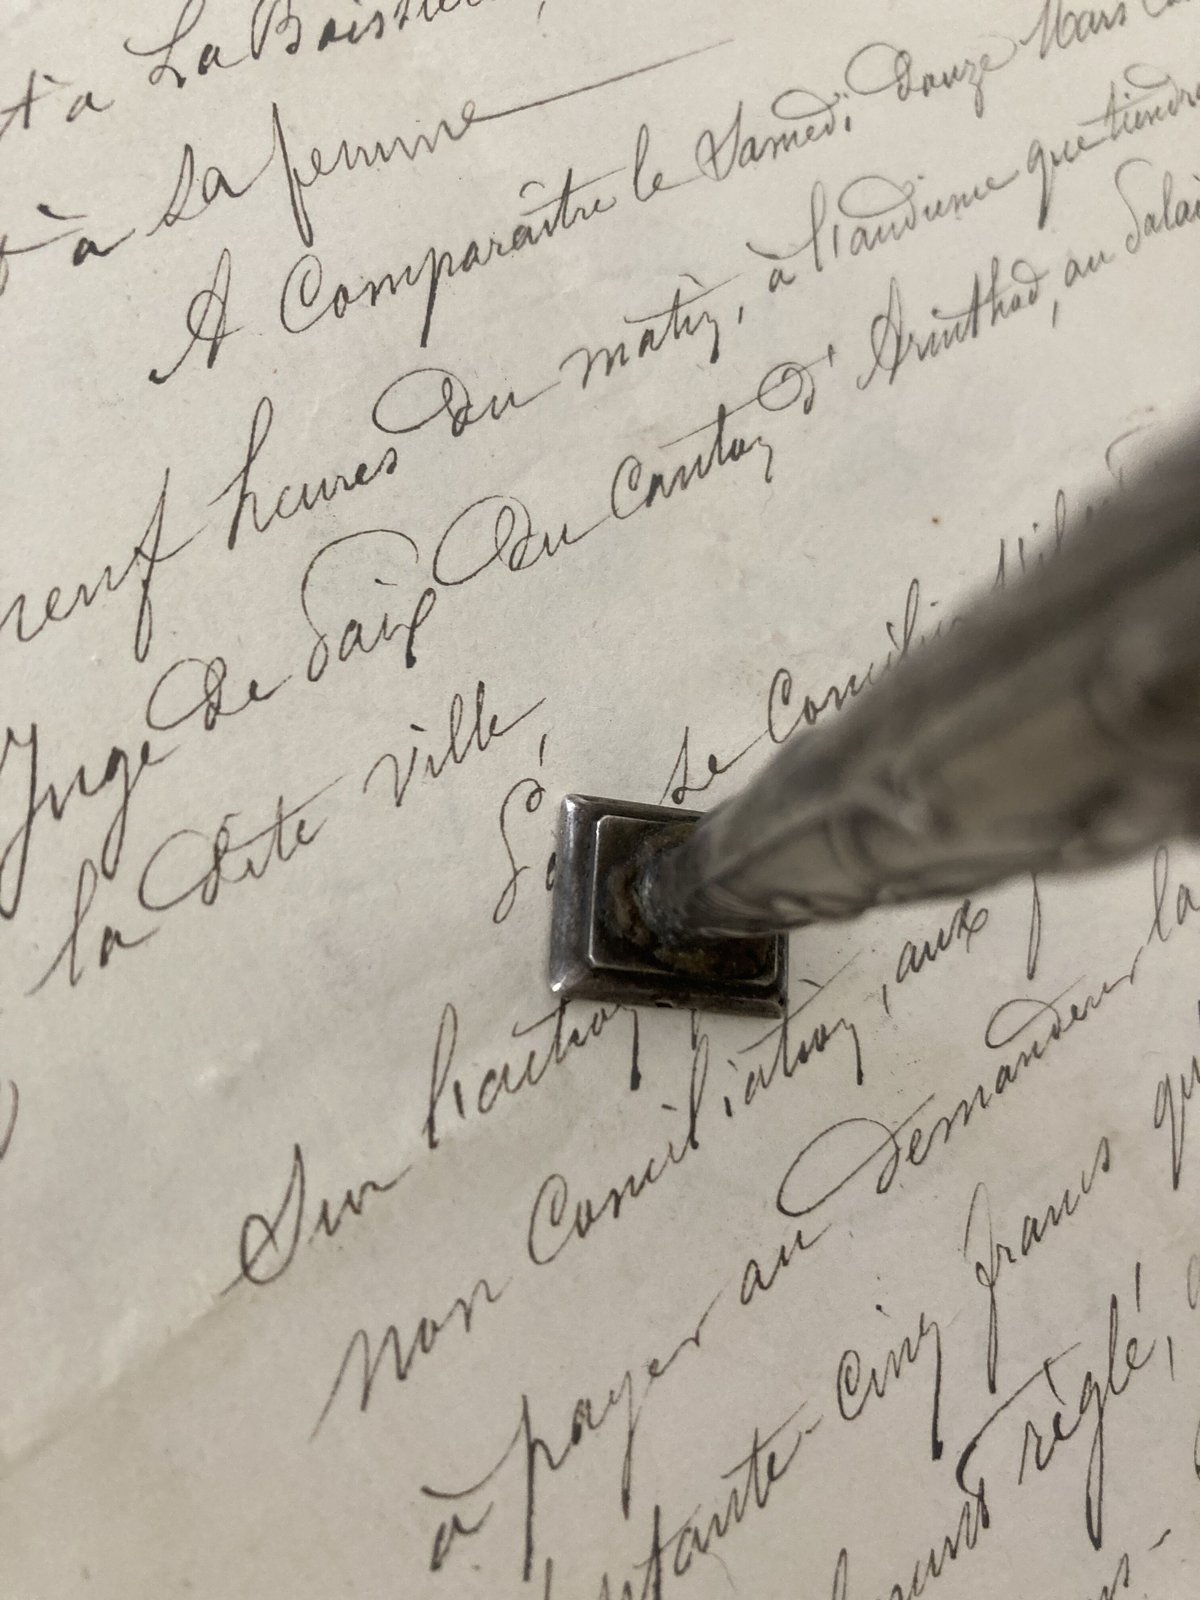 t à La Boissière,
à sa femme
A Comparaître le Samedi douze Mars
neuf heures du matin, à l'audience que tiendra
Juge de Paix du Canton d'Arinthod, au Palais
la dite ville,
Se Concilier
Sur l'action
non Conciliation, aux
à payer au demandeur la
-cinq francs
réglé,